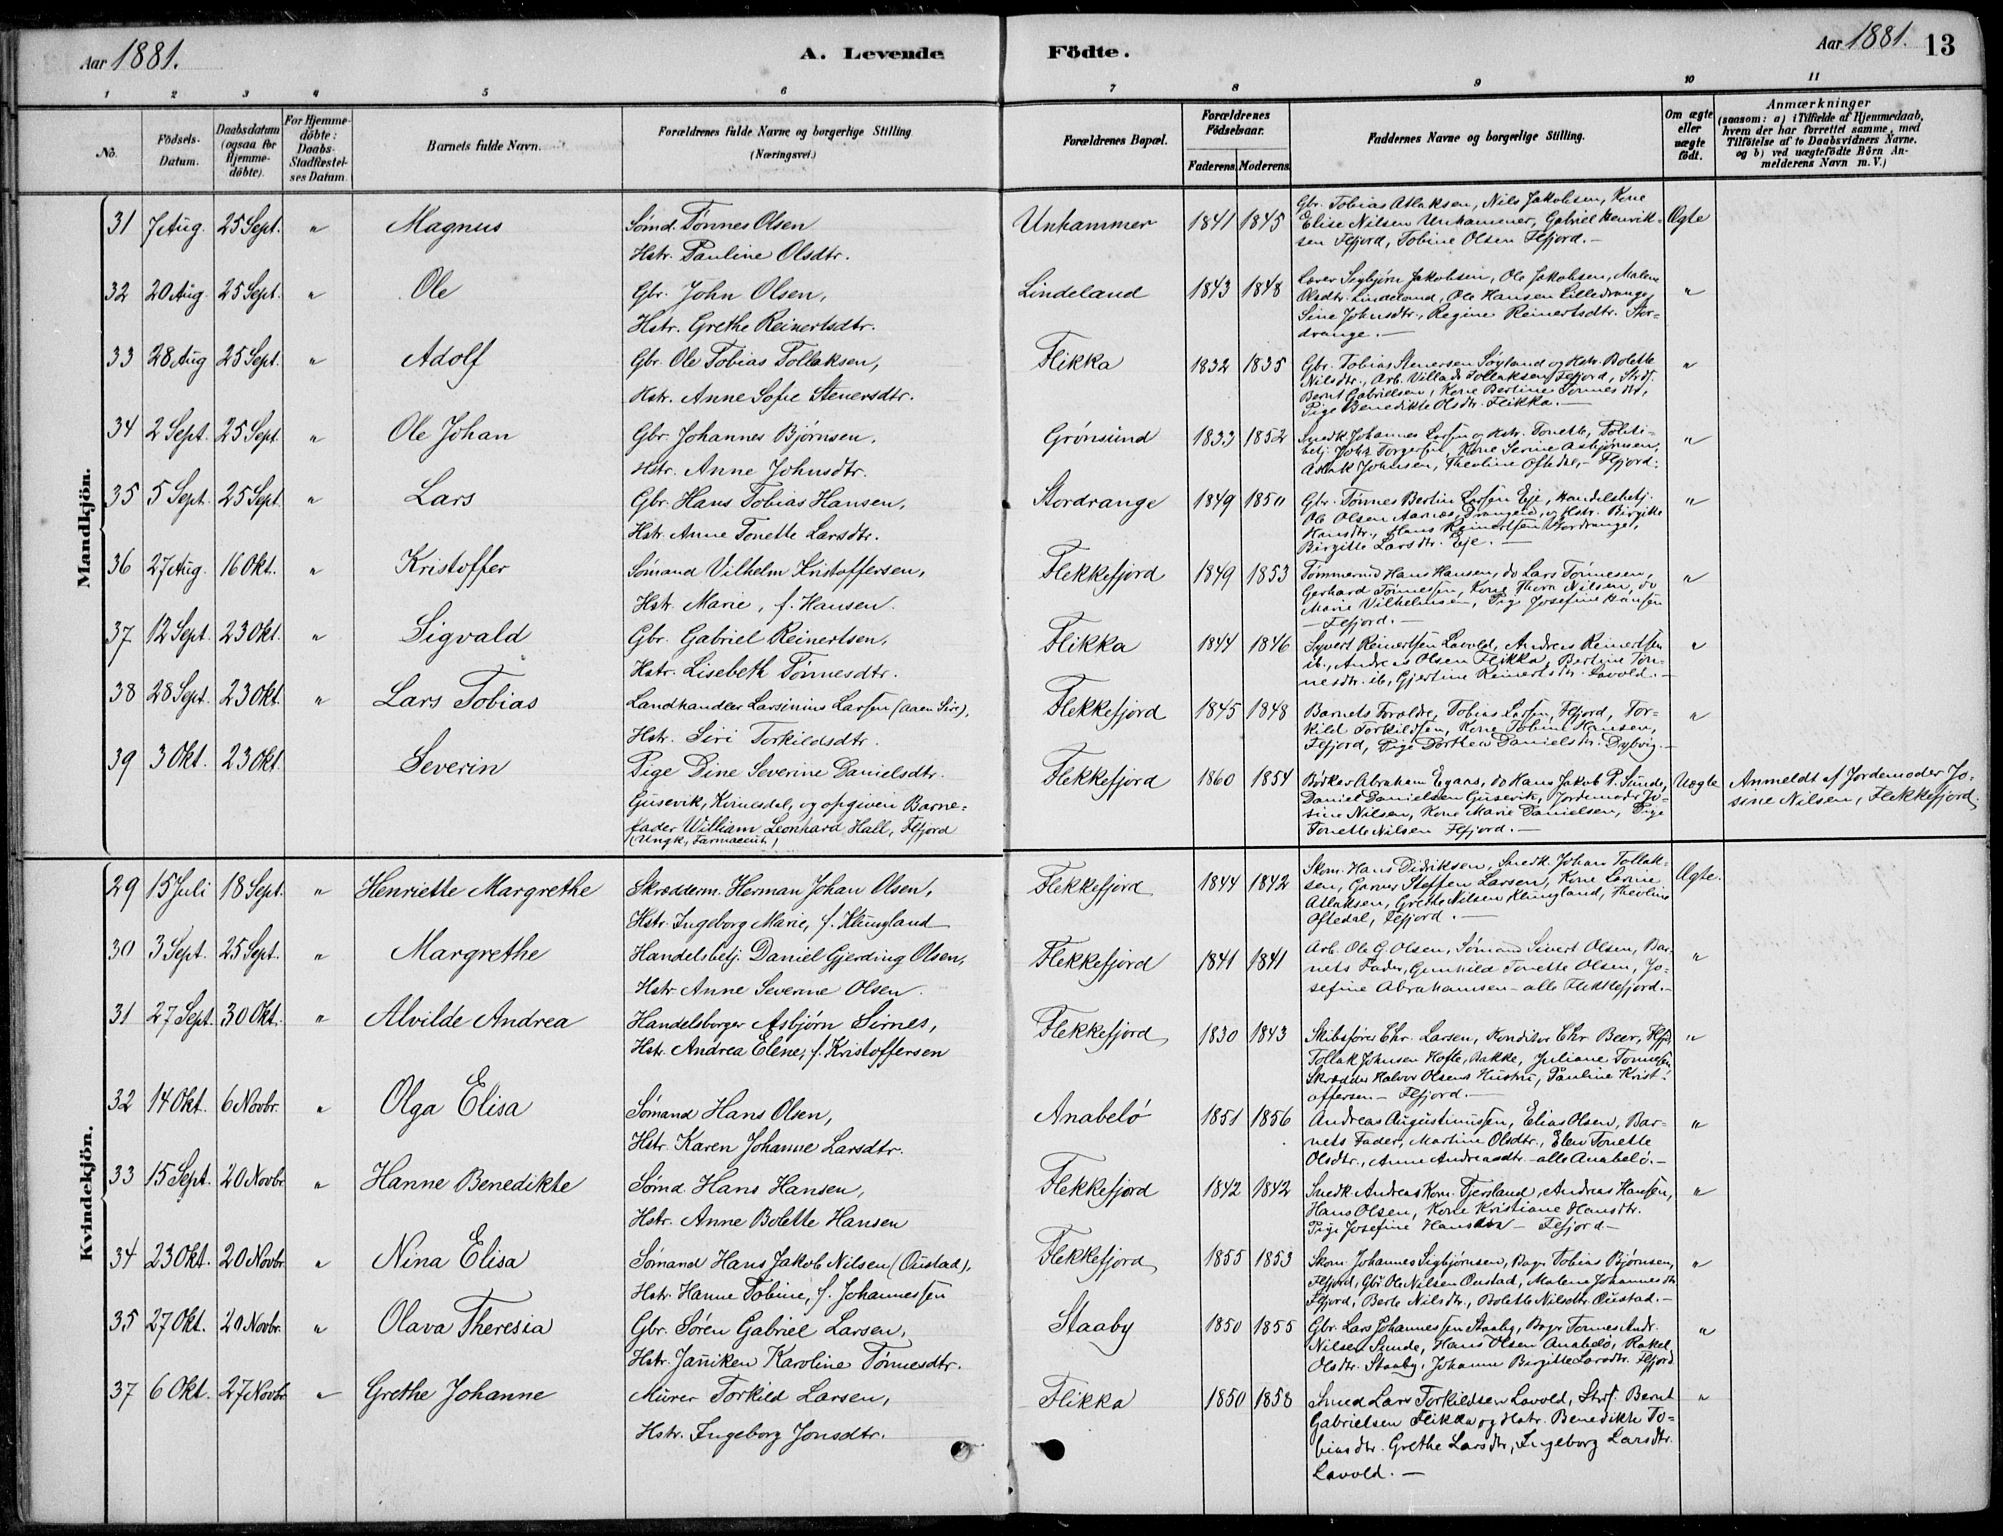 Aar 1881.
A. Levende Födte.
Aar 1881. 13
1 2 3 4 5 6 7 8 9 10 11
No.
Födsels-Datum.
Daabsdatum (ogsaa for Hjemmedöbte).
For Hjemmedöbte: Daabs-Stadfæstelses Datum.
Barnets fulde Navn.
Forældrenes fulde Navne og borgerlige Stilling. (Næringsvei.)
Forældrenes Bopæl.
Forældrenes Födselsaar.
Faderens. Moderens.
Faddernes Navne og borgerlige Stilling.
Om ægte eller uægte födt.
Anmærkninger (saasom: a) i Tilfælde af Hjemmedaab, hvem der har forrettet samme, med Tilföielse af to Daabsvidners Navne. og b) ved uægtefödte Börn Anmelderens Navn m.V.)
Mandkjön.
31 7 Aug. 25 Sept. " Magnus
Sømd. Tønnes Olsen
Hstr. Pauline Olsdtr.
Unhammer 1841 1845
Gbr. Tobias Atlaksen, Nils Jakobsen, Kone
Elise Nilsen Unhammer, Gabriel Henrik-
sen Flfjord, Tobine Olsen Flfjord.—
Ægte
32 20 Aug. 25 Sept. " Ole
Gbr. John Olsen,
Hstr. Grethe Reinertsdtr.
Lindeland 1843 1848
Lærer Sigbjørn Jakobsen, Ole Jakobsen, Malene
Olsdtr. Lindeland, Ole Hansen Lilledrange,
Sine Johnsdtr., Regine Reinertsdtr. Stor-
drange.—
"
33 28 Aug 25 Sept. " Adolf
Gbr. Ole Tobias Tollaksen,
Hstr. Anne Sofie Stenersdtr.
Flikka 1832 1835
Gbr. Tobias Stenersen Søyland og Hstr. Bolette
Nilsdtr., Arb. Villads Tollaksen Flfjord, Strf.
Bernt Gabrielsen, Kone Bertine Tønnesdtr,
Pige Benedikte Olsdtr. Flikka.—
"
34 2 Sept. 25 Sept. " Ole Johan
Gbr. Johannes Bjørnsen,
Hstr. Anne Johnsdtr.
Grønsund 1833 1852
Snedk. Johannes Larsen og Hstr. Tonette, Politi-
betj. Torgersen, Kone Serine Asbjørnsen,
Aslak Johnsen, Theoline Oftedal,— Flfjord.
"
35 5 Sept. 25 Sept. " Lars
Gbr. Hans Tobias Hansen,
Hstr. Anne Tonette Larsdtr.
Stordrange 1849 1850
Gbr. Tønnes Bertin Larsen Eje, Handelsbetj.
Ole Olsen Aanæs, Drangeid, og Hstr. Birgitte
Hansdtr., Hans Reinertsen Stordrange,
Birgitte Larsdtr. Eje.—
"
36 27 Aug. 16 Okt. " Kristoffer
Sømand Vilhelm Kristoffersen,
Hstr. Marie, f. Hansen.
Flekkefjord 1849 1853
Tømmermd Hans Hansen, do Lars Tønnesen,
Gerhard Tønnessen, Kone Thora Nilsen, do
Marie Vilhelmsen, Pige Josefine Hansen
— Flfjord.—
"
37 12 Sept. 23 Okt. " Sigvald
Gbr. Gabriel Reinertsen,
Hstr. Lisebeth Tønnesdtr.
Flikka 1844 1846
Syvert Reinertsen Lavold, Andreas Reinertsen
ib., Andreas Olsen Flikka, Bertine Tøn-
nesdtr. ib., Gjertine Reinertsdtr. Lavold.—
"
38 28 Sept. 23 Okt. " Lars Tobias
Landhandler Larsinius Larsen (Aaen Sire),
Hstr. Siri Torkildsdtr.
Flekkefjord 1845 1848
Barnets Forældre, Tobias Larsen, Flfjord, Tor-
kild Torkildsen, Kone Tobine Hansen,
Flfjord, Pige Dorthea Danielsdtr. Dybvig.—
"
39 3 Okt. 23 Okt. Severin
Pige Dine Severine Danielsdtr.
Gusevik, Kvinesdal, og opgiven Barne-
fader William Leonhard Hall, Flfjord
(Ungk, Farmaceut)
Flekkefjord 1860 1854
Bødker Abraham Egaas, do Hans Jakob P. Sunde,
Daniel Danielsen Gusevik, Jordemoder Jo-
sine Nilsen, Kone Marie Danielsen, Pige
Tonette Nilsen Flfjord.—
Uægte
Anmeldt af Jordemoder Jo-
sine Nilsen, Flekkefjord.
Kvindekjön.
29 15 Juli 18 Sept. " Henriette Margrethe
Skrædderm. Herman Johan Olsen,
Hstr. Ingeborg Marie, f. Klungland
Flekkefjord 1844 1842
Skom. Hans Didriksen, Snedk. Johan Tollak-
sen, Garver Steffen Larsen, Kone Lovise
Atlaksen, Grethe Nilsen Klungland, Theoline
Oftedal, Flfjord.—
Ægte.
30 3 Sept. 25 Sept. " Margrethe
Handelsbetj. Daniel Gjerding Olsen,
Hstr. Anne Severine Olsen.
Flekkefjord 1841 1841
Arb. Ole G. Olsen, Sømand Sivert Olsen, Bar-
nets Fader, Gunhild Tonette Olsen, Jo-
sefine Abrahamsen — alle Flekkefjord.—
"
31 27 Sept. 30 Okt. " Alvilde Andrea
Handelsborger Asbjørn Sirnes,
Hstr. Andrea Elene, f. Kristoffersen
Flekkefjord 1830 1843
Skibsfører Chr. Larsen, Konditor Chr Beer, Flfjd,
Tollak Johnsen Hofte, Bakke, Juliane Tønnesen,
Skrædder Halvor Olsens Hustru, Pauline Krist-
offersen — Flfjord.—
"
32 14 Okt. 6 Novbr. " Olga Elisa
Sømand Hans Olsen,
Hstr. Karen Johanne Larsdtr.
Anabelø 1851 1856
Andreas Augustinussen, Elias Olsen, Bar-
nets Fader, Martine Olsdtr., Elen Tonette
Olsdtr., Anne Andreasdtr. — alle Anabelø.—
"
33 15 Sept. 20 Novbr. " Hanne Benedikte
Sømd. Hans Hansen,
Hstr. Anne Bolette Hansen
Flekkefjord 1842 1842
Snedk. Andreas Korn. Tjersland, Andreas Hansen,
Hans Olsen, Kone Kristiane Hansdtr.
Pige Josefine Hansen — Flfjord —
"
34 23 Okt. 20 Novbr. " Nina Elisa
Sømand Hans Jakob Nilsen (Øustad),
Hstr. Hanne Tobine, f. Johannessen
Flekkefjord 1855 1853
Skom. Johannes Sigbjørnsen, Bagr Tobias Bjørnsen,
Flfjord, Gbr Ole Nilsen Øustad, Malene Johannesdtr
Flfjord, Berte Nilsdtr., Bolette Nilsdtr. Øustad.—
"
35 27 Okt. 20 Novbr. " Olava Theresia
Gbr. Søren Gabriel Larsen,
Hstr. Janiken Karoline Tønnesdtr.
Staaby 1850 1855
Gbr. Lars Johannessen Staaby, Bagr Tønnes Andr.
Nilsen Sunde, Hans Olsen Anabelø, Rakel
Olsdtr. Staaby, Johanne Birgitte Larsdtr. Flfjord
"
37 6 Okt. 27 Novbr. " Grethe Johanne
Murer Torkild Larsen,
Hstr. Ingeborg Jonsdtr.
Flikka 1850 1858
Smed Lars Torkildsen Lavold, Strf. Bernt
Gabrielsen Flikka og Hstr. Benedikte To-
biasdtr. Grethe Larsdtr, Ingeborg Larsdtr.
Lavold.—
"